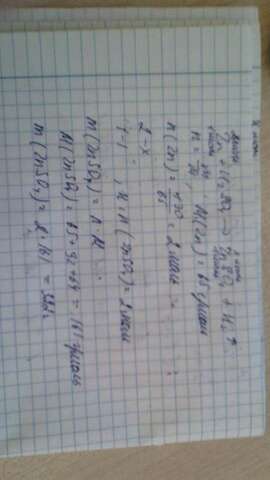 Zn + H₂SO₄ → ZnSO₄ + H₂↑
M(Zn) = 65 г/моль
n(Zn) = 130/65 = 2 моль
2 – x
1 – 1, n(ZnSO₄) = 2 моль
m(ZnSO₄) = n · M
M(ZnSO₄) = 65+32+64 = 161 г/моль
m(ZnSO₄) = 2·161 = 322г